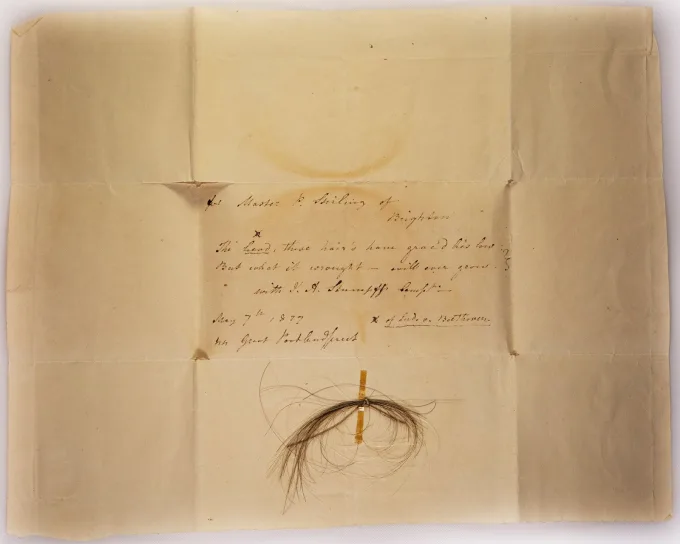 for Master P. Stirling of
Brighton
x
The head, these hair's have grac'd his low
But what it wrought — will ever grow
with J. A. Stumpff Compts
May 7th, 18
x of Ludv. v. Beethoven.
44 Great Portland Street